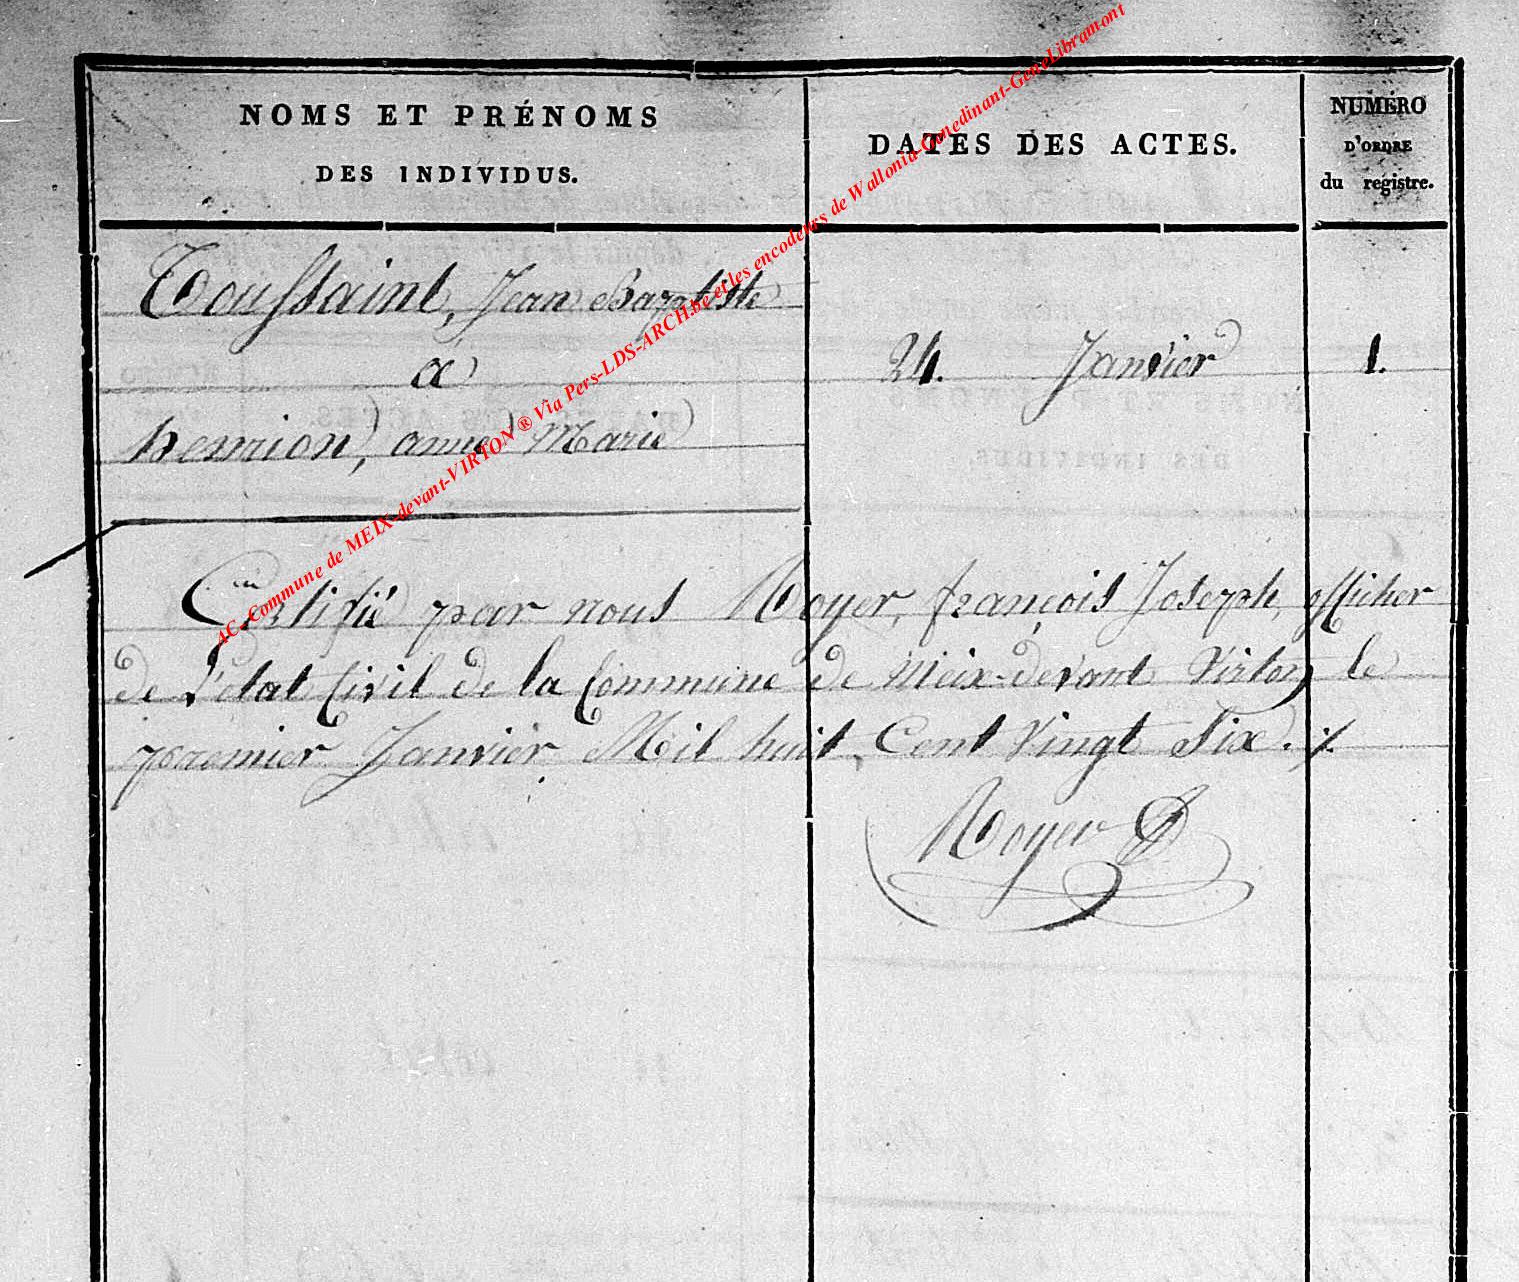 NOMS ET PRÉNOMS
DES INDIVIDUS.
DATES DES ACTES.
NUMÉRO
D'ORDRE
du registre.
Toussaint, Jean Baptiste
a
henrion, anne Marie
24. Janvier
1.
Certifié par nous Noyer, françois Joseph, officier
de l'etat Civil de la Commune de Meix-devant Virton, le
premier Janvier Mil huit Cent Vingt Six. ./.
Noyer
AC-Commune de MEIX-devant-VIRTON ® Via Pers-LDS-ARCH.be et les encodeurs de Wallonia-Genedinant-GeneLibramont